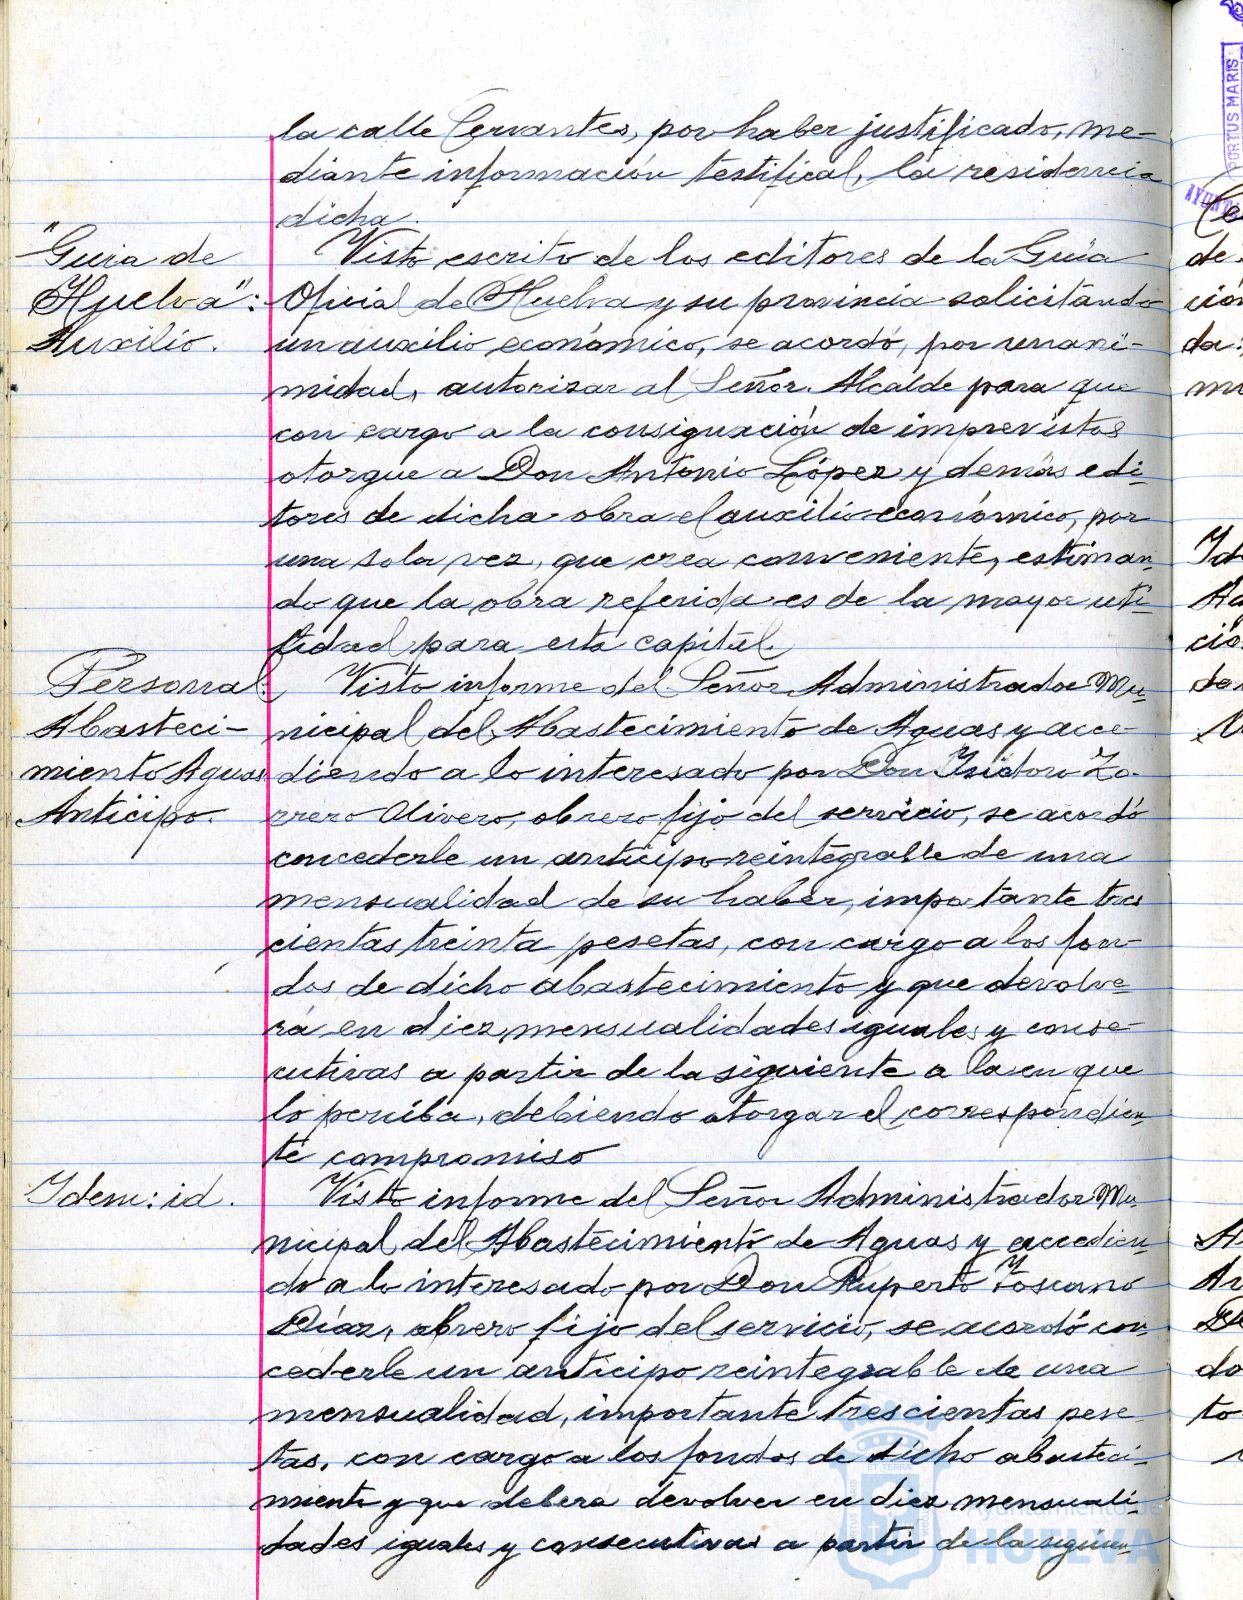 la calle Cervantes, por haber justificado, me-
diante información testifical, la residencia
dicha.
"Guia de
Huelva":
Auxilio.
Visto escrito de los editores de la Guía
Oficial de Huelva y su provincia solicitando
un auxilio económico, se acordó, por unani-
midad, autorizar al Señor Alcalde para que
con cargo a la consignación de imprevistos
otorgue a Don Antonio López y demás edi-
tores de dicha obra el auxilio económico, por
una sola vez, que crea conveniente, estiman-
do que la obra referida es de la mayor uti-
lidad para esta capital.
Personal
Abasteci-
miento Aguas
Anticipo.
Visto informe del Señor Administrador Mu-
nicipal del Abastecimiento de Aguas y acce-
diendo a lo interesado por Don Isidoro Zo-
rrero Olivero, obrero fijo del servicio, se acordó
concederle un anticipo reintegrable de una
mensualidad de su haber, importante tres
cientas treinta pesetas, con cargo a los fon-
dos de dicho abastecimiento y que devolve-
rá en diez mensualidades iguales y conse-
cutivas a partir de la siguiente a la en que
lo perciba, debiendo otorgar el correspondien-
te compromiso
Idem: id.
Visto informe del Señor Administrador Mu-
nicipal del Abastecimiento de Aguas y accedien-
do a lo interesado por Don Ruperto Toscano
Díaz, obrero fijo del servicio, se acordó con-
cederle un anticipo reintegrable de una
mensualidad, importante trescientas pese-
tas, con cargo a los fondos de dicho abasteci-
miento y que debera devolver en diez mensuali-
dades iguales y consecutivas a partir de la siguien-
PORTUS MARIS
Ayuntamiento de
HUELVA